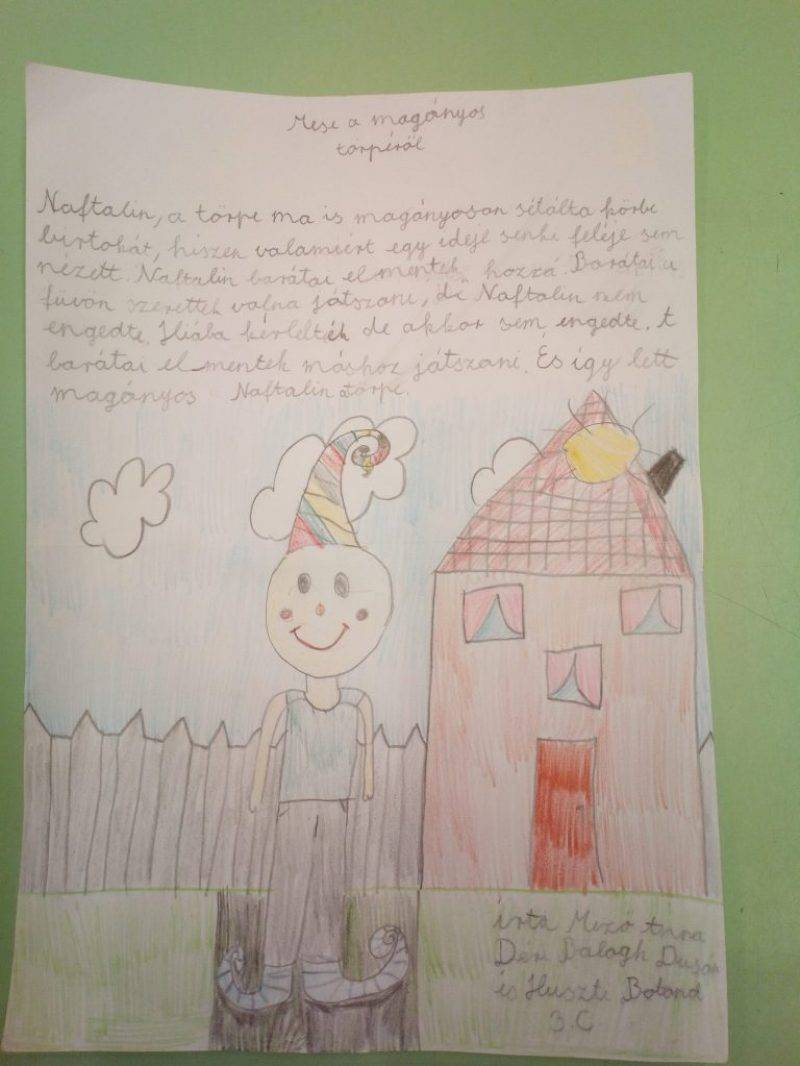 Mese a magányos
törpéről
Naftalin, a törpe ma is magányosan sétálta körbe
birtokát, hiszen valamiért egy ideje senki feléje sem
nézett. Naftalin barátai elmentek hozzá. Barátai a
füvön szerettek volna játszani, de Naftalin nem
engedte. Hiába kérlelték de akkor sem engedte. A
barátai el mentek máshoz játszani. És így lett
magányos Naftalin a törpe.
írta Mező Anna
Balogh Dusán
és Huszti Botond
3.C